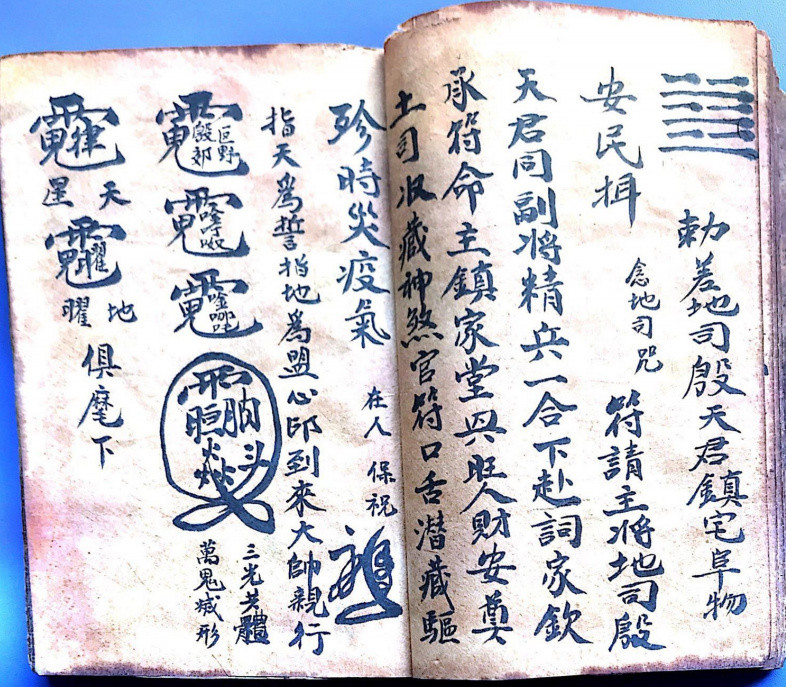 勅差地司殷天君鎮宅阜物
安民
念地司咒
符請主將地司殷
天君同副將精兵一合下赴詞家欽
承符命主鎮家堂興旺人財安奠
土司收藏神煞官符口舌潛藏驅
殄時災疫氣
在人保祝
指天爲誓指地爲盟心印到來大帥親行
巨野
殷郊
三光共體
萬鬼滅形
天
星
地
曜
俱麾下